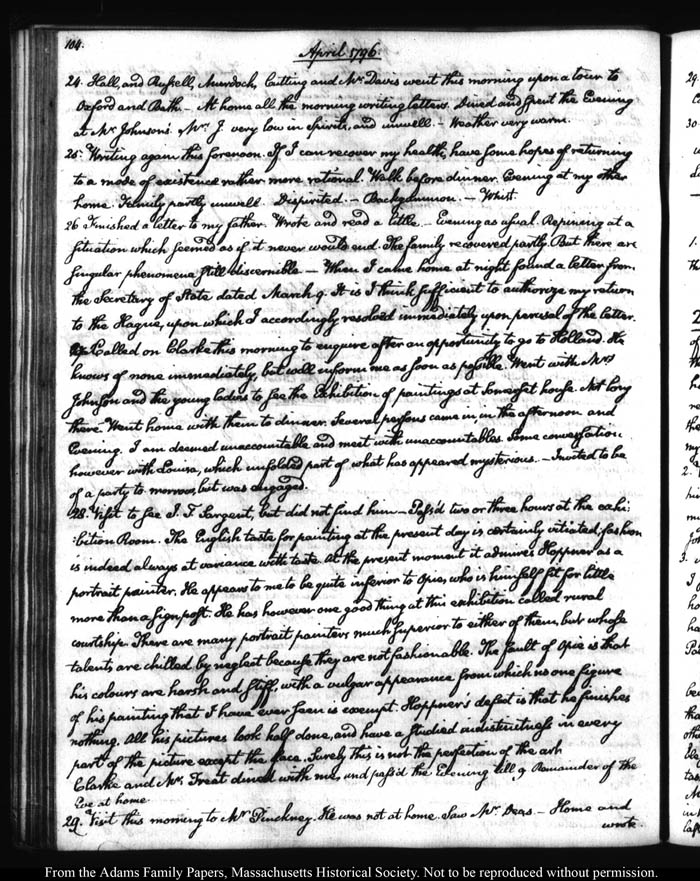 104.
April 1796.
24. Hall, and Russell, Murdock, Cutting and Mr. Davis went this morning upon a tour to
Oxford and Bath. — At home all the morning writing letters. Dined and spent the Evening
at Mr. Johnson's. Mrs. J. very low in spirits, and unwell. — Weather very warm.
25. Writing again this forenoon. If I can recover my health, have some hopes of returning
to a mode of existence rather more rational. Walk before dinner. Evening at my other
home. Family partly unwell. Dispirited. — Backgammon. — Whist.
26 Finished a letter to my father. Wrote and read a little. — Evening as usual. Repining at a
situation which seemed as if it never would end. The family recovered partly. But there are
singular phenomena still discernible. — When I came home at night found a letter from
the Secretary of State dated March 9. It is I think sufficient to authorize my return
to the Hague, upon which I accordingly resolved immediately upon perusal of the letter.
Called on Clarke this morning to enquire after an opportunity to go to Holland. He
knows of none immediately, but will inform me as soon as possible. Went with Mrs.
Johnson and the young ladies to see the Exhibition of paintings at Somerset house. Not long
there. Went home with them to dinner. Several persons came in, in the afternoon and
Evening. I am deemed unaccountable and meet with unaccountables. Some conversation
however with Louisa, which unfolded part of what has appeared mysterious. — Invited to be
of a party to morrow, but was engaged.
28. Visit to see I. T. Sargent, but did not find him — Pass'd two or three hours at the exhi:
:bition Room. The English taste for painting at the present day is certainly vitiated, fashion
is indeed always at variance with taste. At the present moment it admires Hoppner as a
portrait painter. He appears to me to be quite inferior to Opie, who is himself fit for little
more than a sign post. He has however one good thing at this exhibition called rural
courtship. There are many portrait painters much superior to either of them, but whose
talents are chilled by neglect because they are not fashionable. The fault of Opie is that
his colours are harsh and stiff, with a vulgar appearance from which no one figure
of his painting that I have ever seen is exempt. Hoppner's defect is that he finishes
nothing. All his pictures look half done, and have a studied indistinctness in every
part of the picture except the face. Surely this is not the perfection of the art.
Clarke and Mr. Treat dined with me, and pass'd the Evening till 9 Remainder of the
Eve at home
29. Visit this morning to Mr. Pinckney. He was not at home. Saw Mr. Deas. — Home and
wrote.
From the Adams Family Papers, Massachusetts Historical Society. Not to be reproduced without permission.